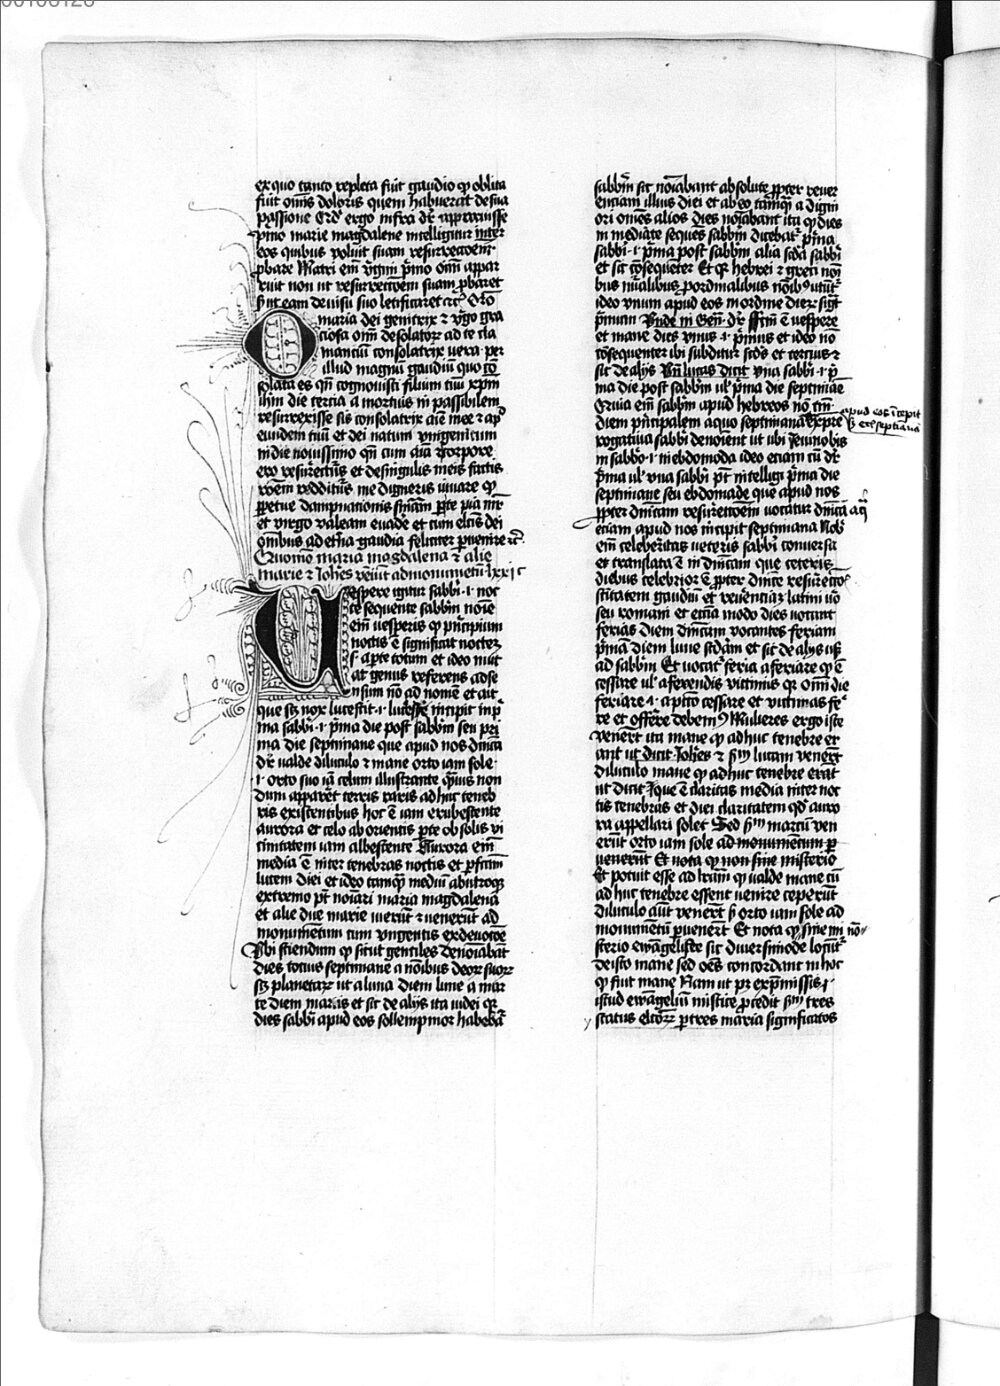 ex quo tanto repleta fuit gaudio qꝫ oblita
fuit om̅is doloris quem habuerat de sua
passione Cꝛd' ergo infra d̅r apparuisse
pͥmo marie magdalene intelligitur inter
eos quibus voluit suam resurrectoem̅
ꝓbare Matri em̅ vͥgini pͥmo om̅i appar
ruit non ut resurrectoem̅ suam ꝓbaret
sꝫ ut eam de visu suo letificaret ⁊c̅ Oro̅
O maria dei genitrix ⁊ vͥgo gra
ciosa om̅ desolatoꝝ ad te cla
mantiu̅ consolatrix vera per
illud magnu̅ gaudiu̅ quo co̅
solata es qn̅ cognouisti filium tuu̅ xp̅m
ih̅m die tercia a mortuis in passibilem
resurrexisse sis consolatrix aie̅ mee ⁊ apᵈ
eundem tuu̅ et dei natum vnigenitum
in die nouissimo qn̅ cum aia̅ ⁊ corpore
ero resurrect'us et de singulis meis factis
ro̅em reddit'us me digneris iuuare qꝫ
ꝑpetue dampnationis sn̅iam ꝑ te pia mr̅
et virgo valeam euade et cum elc̅is dei
om̅ibus ad et̅na gaudia feliciter ꝑuenire ⁊c̅
Quomo̅ maria magdalena ⁊ alie
marie ⁊ Joh̅es veiu̅t ad monumetu̅ lxxi c̅
Vespere igitur sabbi ·i· noc
te sequente sabbm̅ no̅ie
em̅ vesperis qꝫ pͥncipium
noctis e̅ significat noctez
s· a ꝑte totum et ideo mut
at genus referens ad se
nsum no̅ ad nome̅ et ait
que sꝫ nox lucescit ·i· lucesse̅ incipit in pͥ
ma sabbi ·i· pͥma die post sabbm̅ seu pri
ma die septimane que apud nos dn̅ica
d̅r valde diluculo ⁊ mane orto iam sole
·i· orto suo ia̅ celum illustrante qͣuis non
dum appare̅t terris raris ad huc teneb
ris existentibus hoc e̅ iam erubescente
aurora et celo ab orientis ꝑte ob solis vi
cinitatem iam albescente Aurora em̅
media e̅ inter tenebras noctis et ꝑfc̅am
lucem diei et ideo tamqꝫ mediu̅ ab utroqꝫ
extremo pt̅ no̅iari maria magdalena
et alie due marie ieru̅t ⁊ veneru̅t ad
monumentum cum vngentis ex deuoto̅e
Ubi sciendum qꝫ sicut gentiles deno̅iaba̅t
dies totius septimane a no̅ibus deoꝝ suoꝝ
sꝫ planetaꝝ ut a luna diem lune a mar
te diem martis et sic de alijs ita iudei qꝛ
dies sabbi apud eos sollempnior habebat̅
sabbm̅ sic no̅iabant absolute ꝓpter reuer
enciam illius diei et ab eo tamqꝫ a digni
ori om̅es alios dies no̅iabant ita qꝫ dies
in mediate seque̅s sabbm̅ dicebat̅ pͥma
sabbi ·i· pͥma post sabbm̅ alia sc̅da sabbi
et sic co̅sequeter Et qꝛ hebrei ⁊ greci non
bus nu̅alibus ꝓ ordinalibus no̅ib⁹ utu̅t̅
ideo vnum apud eos in ordine dieꝝ sigt̅
pͥmum Unde in Gen̅ d̅r ffc̅m e̅ vespere
et mane dies vnus ·i· pͥmus et ideo no̅
co̅sequenter ibi subditur sc̅ds et tercius ⁊
sic de alijs Vn̅ lucas dicit vna sabbi ·i· pͥ
ma die post sabbm̅ ul' pͥma die septimae
Quia em̅ sabbm̅ apud hebreos no̅ tm̅
diem pͥncipalem a quo septimana
apud eos i̅cepit
sꝫ eciā septi̅anā
rogatiua sabbi deno̅ient ut ibi Jeiuno bis
in sabbo ·i· in ebdomoda ideo etiam cu̅ d̅r
pͥma ul' vna sabbi pt̅ intelligi pͥma die
septimane seu ebdomade que apud nos
ꝓpter dn̅icam resurrecto̅em vocatur dn̅ica a qͣ
etiam apud nos incipit septimana Nob̅
em̅ celebritas veteris sabbi conuersa
et translata e̅ in dn̅icam que ceteris
diebus celebrior e̅ ꝓpter dn̅ice resurecco̅
stitatem gaudiu̅ et reuencia̅ latini u̅o
seu romani et etia̅ modo dies vocant
ferias diem dn̅icam vocantes feriam
pͥma̅ diem lune sc̅dam et sic de alijs usqꝫ
ad sabbm̅ Et vocat̅ feria a feriare qꝫ e̅
cessare ul' a ferendis victimis qꝛ om̅i die
feriare ·i· a pc̅co cessare et victimas fer
re et offerre debem⁹ Mulieres ergo iste
vener̅t ita mane qꝫ ad huc tenebre er
ant ut dicit Joh̅es ⁊ sm̅ lucam vener̅t
diluculo mane qꝫ ad huc tenebre era̅t
ut dicit ipse que e̅ claritas media inter noc
tis tenebras et diei claritatem qd̅ auro
ra appellari solet Sed sm̅ marcu̅ ven
eru̅t orto iam sole ad monumentum ꝑ
uenerūt Et nota qꝫ non sine misterio
Et potuit esse ad lr̅am qꝫ valde mane cu̅
ad huc tenebre essent uenire ceperu̅t
diluculo au̅t vener̅t sꝫ orto iam sole ad
monume̅tu̅ ꝑuener̅t Et nota qꝫ sine mi no̅
sterio ewangeliste sic diuersimode locu̅t̅
de isto mane sed o̅es concordant in hoc
qꝫ fuit mane Nam ut pꝫ ex p̅missis ·i·
istud ewangeliu̅ mistice ꝓcedit sm̅ tres
status elc̅oꝝ ꝑ tres maria significatos